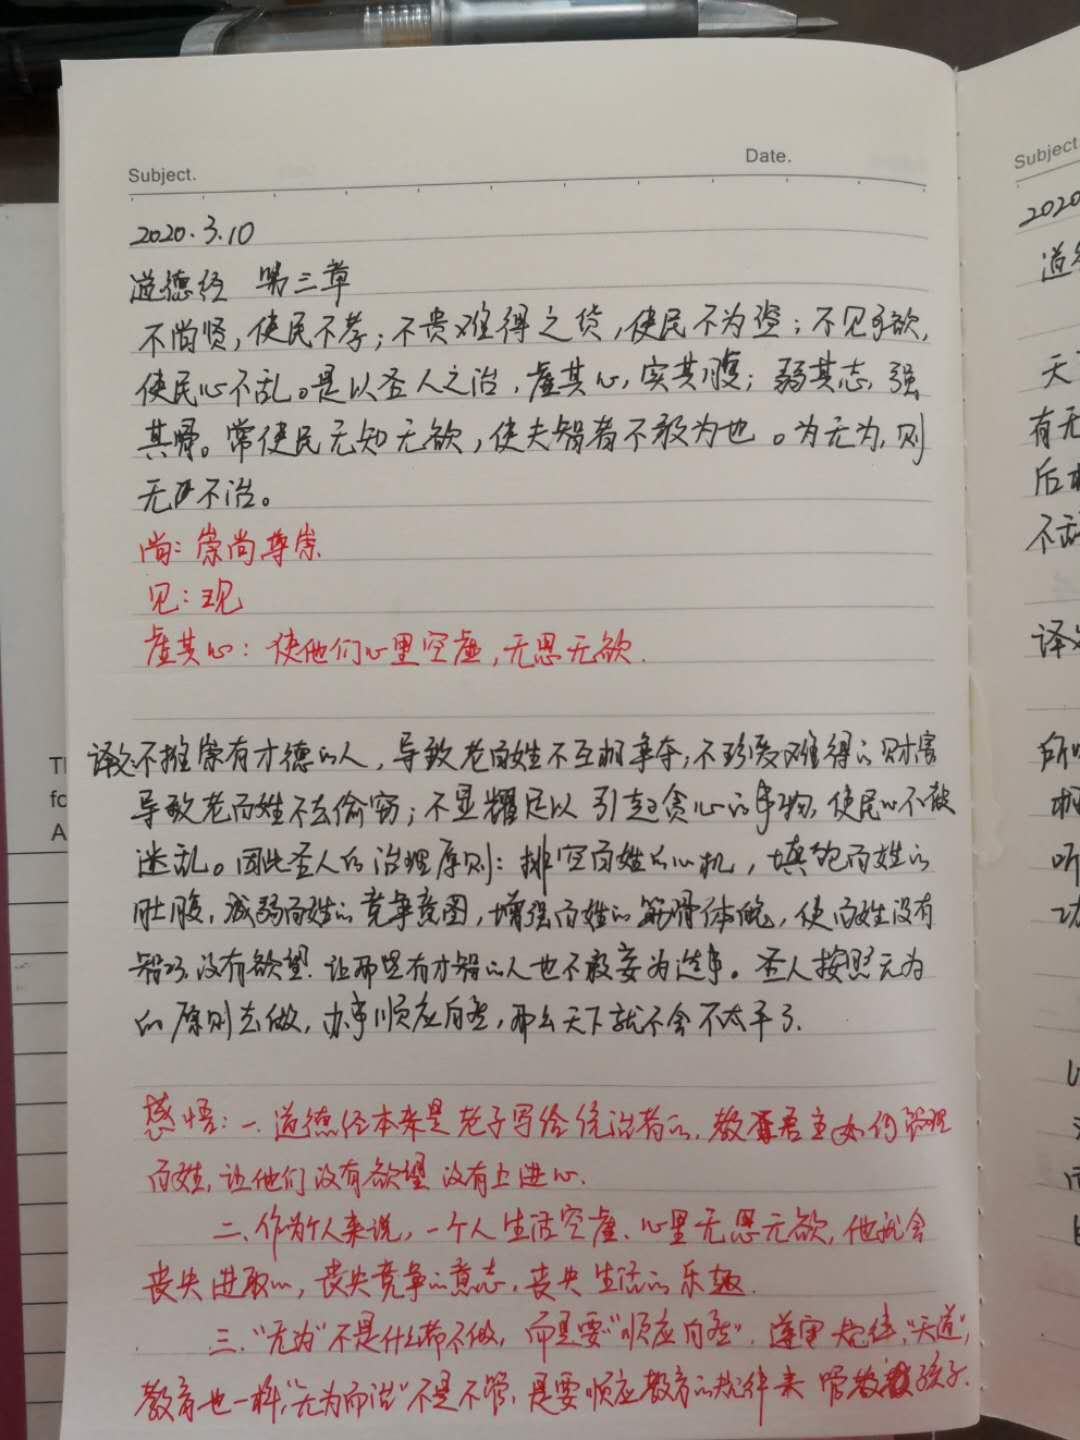 Subject.
Date.
2020.3.10
道德经 第三章
不尚贤，使民不孝；不贵难得之货，使民不为盗；不见可欲，
使民心不乱。是以圣人之治，虚其心，实其腹；弱其志，强
其骨。常使民无知无欲，使夫智者不敢为也。为无为，则
无不治。
尚：崇尚尊崇
见：现
虚其心：使他们心里空虚，无思无欲.
译文：不推崇有才德的人，导致老百姓不互相争夺；不珍爱难得的财富
导致老百姓不去偷窃；不显耀足以引起贪心的事物，使民心不被
迷乱。因此圣人的治理原则：排空百姓的心机，填饱百姓的
肚腹，减弱百姓的竞争意图，增强百姓的筋骨体魄，使百姓没有
智巧，没有欲望．让那些有才智的人也不敢妄为造事。圣人按照无为
的原则去做，办事顺应自然，那么天下就不会不太平了．
感悟：一．道德经本来是老子写给统治者的，教君主如何管理
百姓，让他们没有欲望没有上进心．
二、作为个人来说，一个人生活空虚、心里无思无欲，他就会
丧失进取心，丧失竞争的意志，丧失生活的乐趣．
三、“无为”不是什么都不做，而是要“顺应自然”．遵守规律，“天道”，
教育也一样，“无为而治”不是不管，是要顺应教育的规律来管教孩子．
Subject
2020
道
天
有无
后
不
译
所
听
功
Tl
fo
A